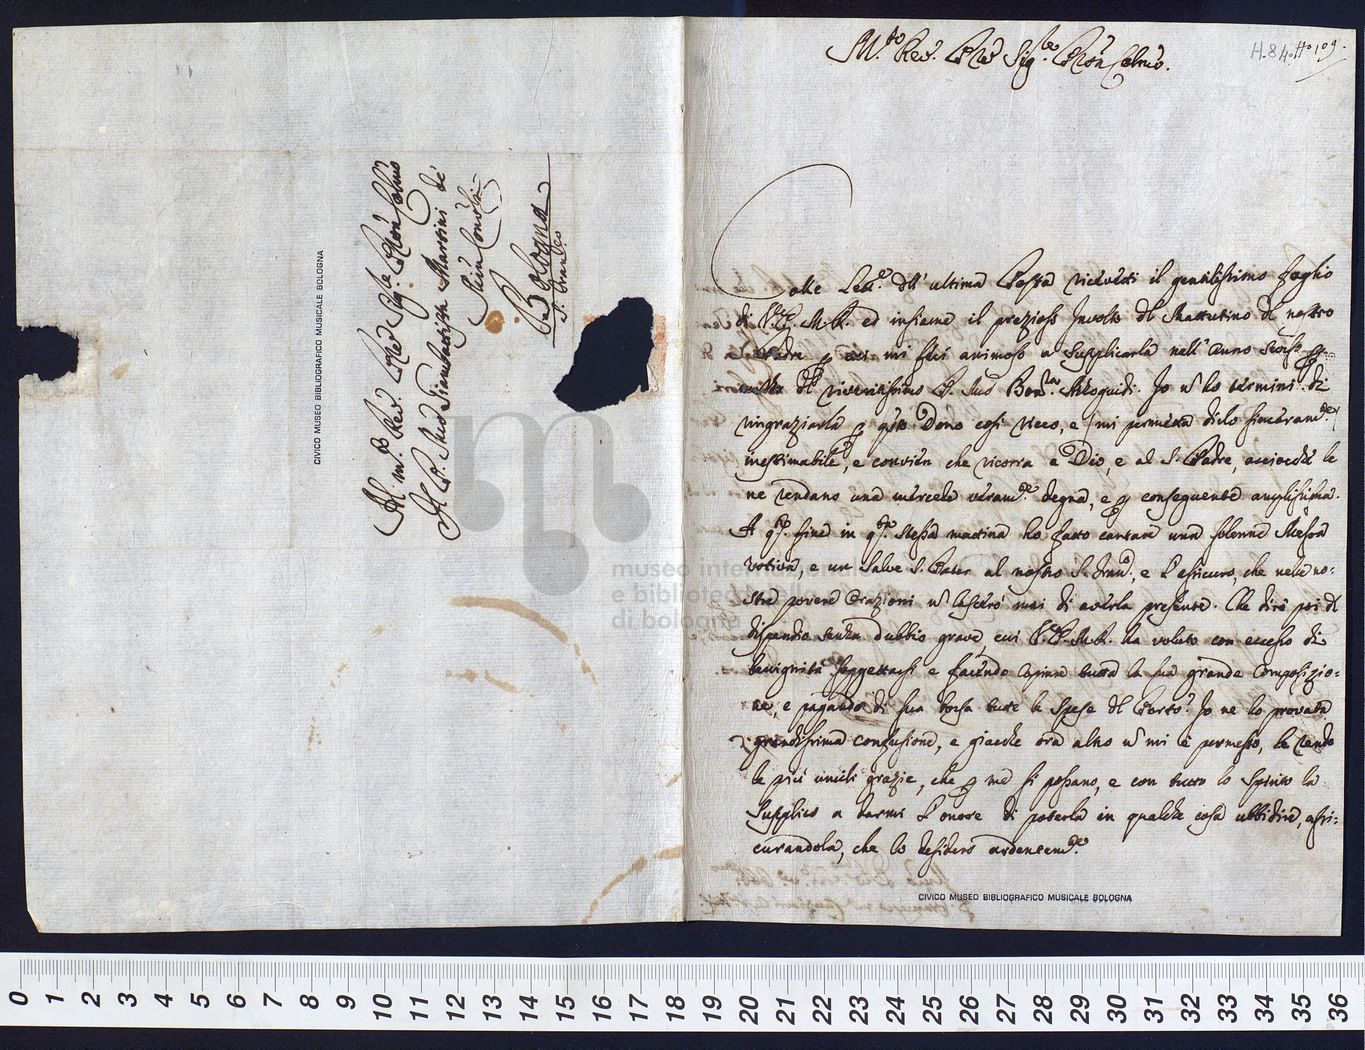 Al m.to Rev. Pre Sig.re Pron Colmo
Il P. Mro Giambattista Martini de
Min: Conv.li
Bologna
S. Franc.co
CIVICO MUSEO BIBLIOGRAFICO MUSICALE BOLOGNA
museo internazionale
e biblioteca della
di bologna
H.84.
109.
M.to Rev. P. Sig.re Pron Colmo.
Colle Lett.e dell' ultima Posta ricevetti il gentilissimo foglio
di V. P. M. R. ed insieme il prezioso Involto del Mattutino del nostro
Padre p cui mi feci animoso a supplicarla nell' Anno scorso p
del riveritissimo P. Mro Bon.ra Io ñ ho termini di
ringraziarla p qsto Dono così ricco, e mi permetta dirlo sinceram.te
inestimabile, e convien che ricorra a Dio e al S. Padre, acciocchè le
ne rendano una mercede veram.te degna, e p conseguente amplissima.
A q.to fine in q.ta stessa mattina ho fatto cantare una solenne Messa
votiva, e un Salve S. Pater al nostro S. Fran.co, e l'assicuro, che nelle no-
stre povere Orazioni ñ lascerò mai di averla presente. Che dirò poi del
dispendio senza dubbio grave, cui V. P. M. R. ha voluto con eccesso di
benignità soggettarsi e facendo copiare tutta la sua grande Composizio-
ne, e pagando di sua borsa tutte le Spese del Porto? Io ne ho provata
grandissima confusione, e giacchè ora altro ñ mi è permesso, le rendo
le più umili grazie, che p me si possano, e con tutto lo Spirito la
supplico a darmi l'onore di poterla in qualche cosa ubbidire, assi-
curandola, che lo desidero ardentem.te
CIVICO MUSEO BIBLIOGRAFICO MUSICALE BOLOGNA
0 1 2 3 4 5 6 7 8 9 10 11 12 13 14 15 16 17 18 19 20 21 22 23 24 25 26 27 28 29 30 31 32 33 34 35 36